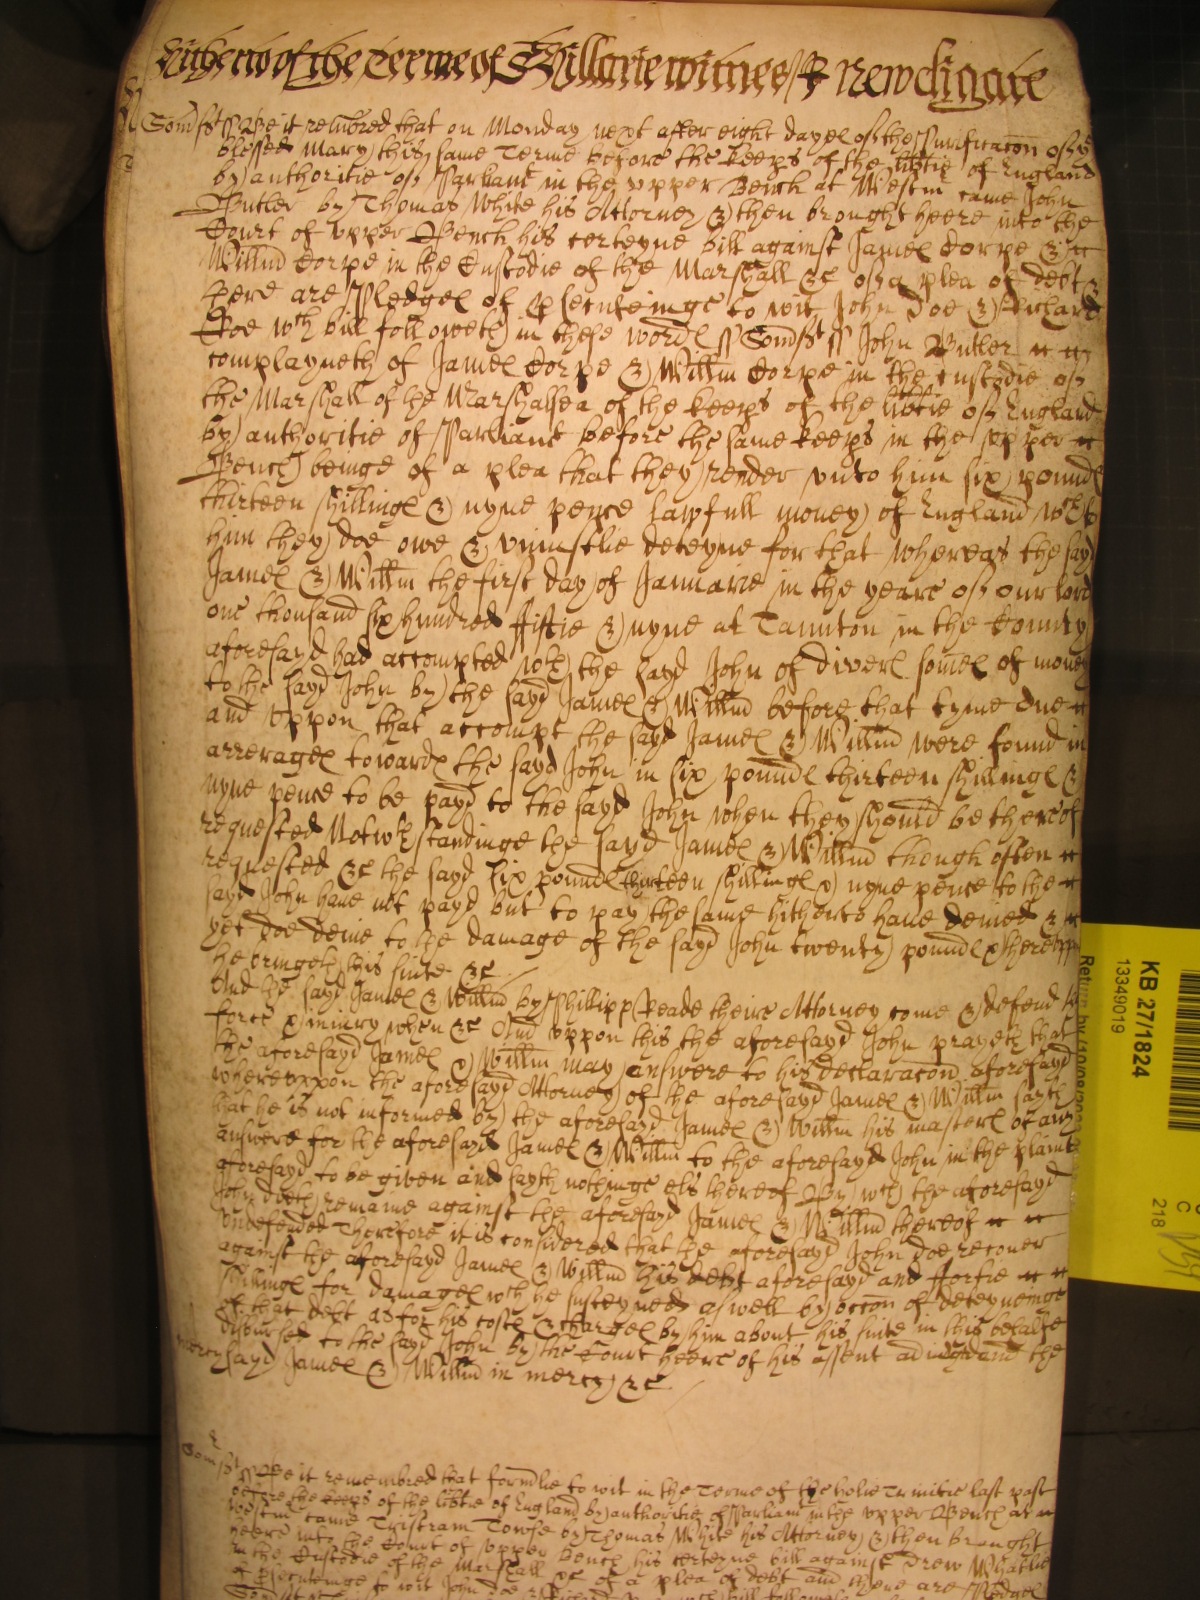 Hitherto of the Terme of Hillarie witnes R Newdigate
Somst ss Be it remembred that on Monday next after eight dayes of the Purificacon of ye
blessed Mary this same Terme before the keeps of the libtie of England
by authoritie of Parliamt in the upper Bench at Westm came John
Butler by Thomas White his Attorney & then brought heere into the
Court of upper Bench his certeyne bill against James Corpe &
Willm Corpe in the Custodie of the Marshall &c of a plea of debt &
there are Pledges of psecuteinge to wit John Doe & Richard
Roe wch bill followeth in these words ss Somst ss John Butler
complayneth of James Corpe & Willm Corpe in the custodie of
the Marshall of the Marshalsea of the keeps of the libtie of England
by authoritie of Parliamt before the same keeps in the upper
Bench beinge of a plea that they render unto him six pounds
thirteen shillings & nyne pence lawfull money of England wch
him they doe owe & uniustlie deteyne for that whereas the sayd
James & Willm the first day of Januarie in the yeare of our lord
one thousand six hundred fiftie & nyne at Taunton in the County
aforesayd had accompted wth the sayd John of divers somes of money
to the sayd John by the sayd James & Willm before that tyme due
and uppon that accompt the sayd James & Willm were found in
arrerages towards the sayd John in six pounds thirteen shillings &
nyne pence to be payd to the sayd John when they should be thereof
requested Notwthstandinge the sayd James & Willm though often
requested &c the sayd six pounds thirteen shillings & nyne pence to the
sayd John have not payd but to pay the same hitherto have denied &
yet doe denie to the damage of the sayd John twenty pounds & thereuppon
he bringeth his suite &c
And the sayd James & Willm by Phillipp Reade theire Attorney come & defend the
force & iniury when &c And uppon this the aforesayd John prayeth that
the aforesayd James & Willm may answere to his declaracon aforesayd
whereuppon the aforesayd Attorney of the aforesayd James & Willm sayth
that he is not informed by the aforesayd James & Willm his masters of any
answere for the aforesayd James & Willm to the aforesayd John in the plaint
aforesayd to be given and sayth nothinge els thereof By wch the aforesayd
John doeth remaine against the aforesayd James & Willm thereof
undefended Therefore it is considered that the aforesayd John doe recover
against the aforesayd James & Willm his debt aforesayd and fortie
shillings for damages wch he susteyned aswell by occon of deteyneinge
of that debt as for his costs & charges by him about his suite in this behalfe
disbursed to the sayd John by the Court heere of his assent adiudged and the
mercy sayd James & Willm in mercy &c
Somst ss Be it remembred that formlie to wit in the Terme of the holie Trinitie last past
before the keeps of the libtie of England by authoritie of Parliamt in the upper Bench at
Westm came Tristram Towse by Thomas White his Attorney & then brought
heere into the Court of upper Bench his certeyne bill against Drew Whatlie
in the Custodie of the Marshall &c of a plea of debt and there are Pledges
of psecuteinge to wit John Doe & Richard
KB 27/1824
13349019
218